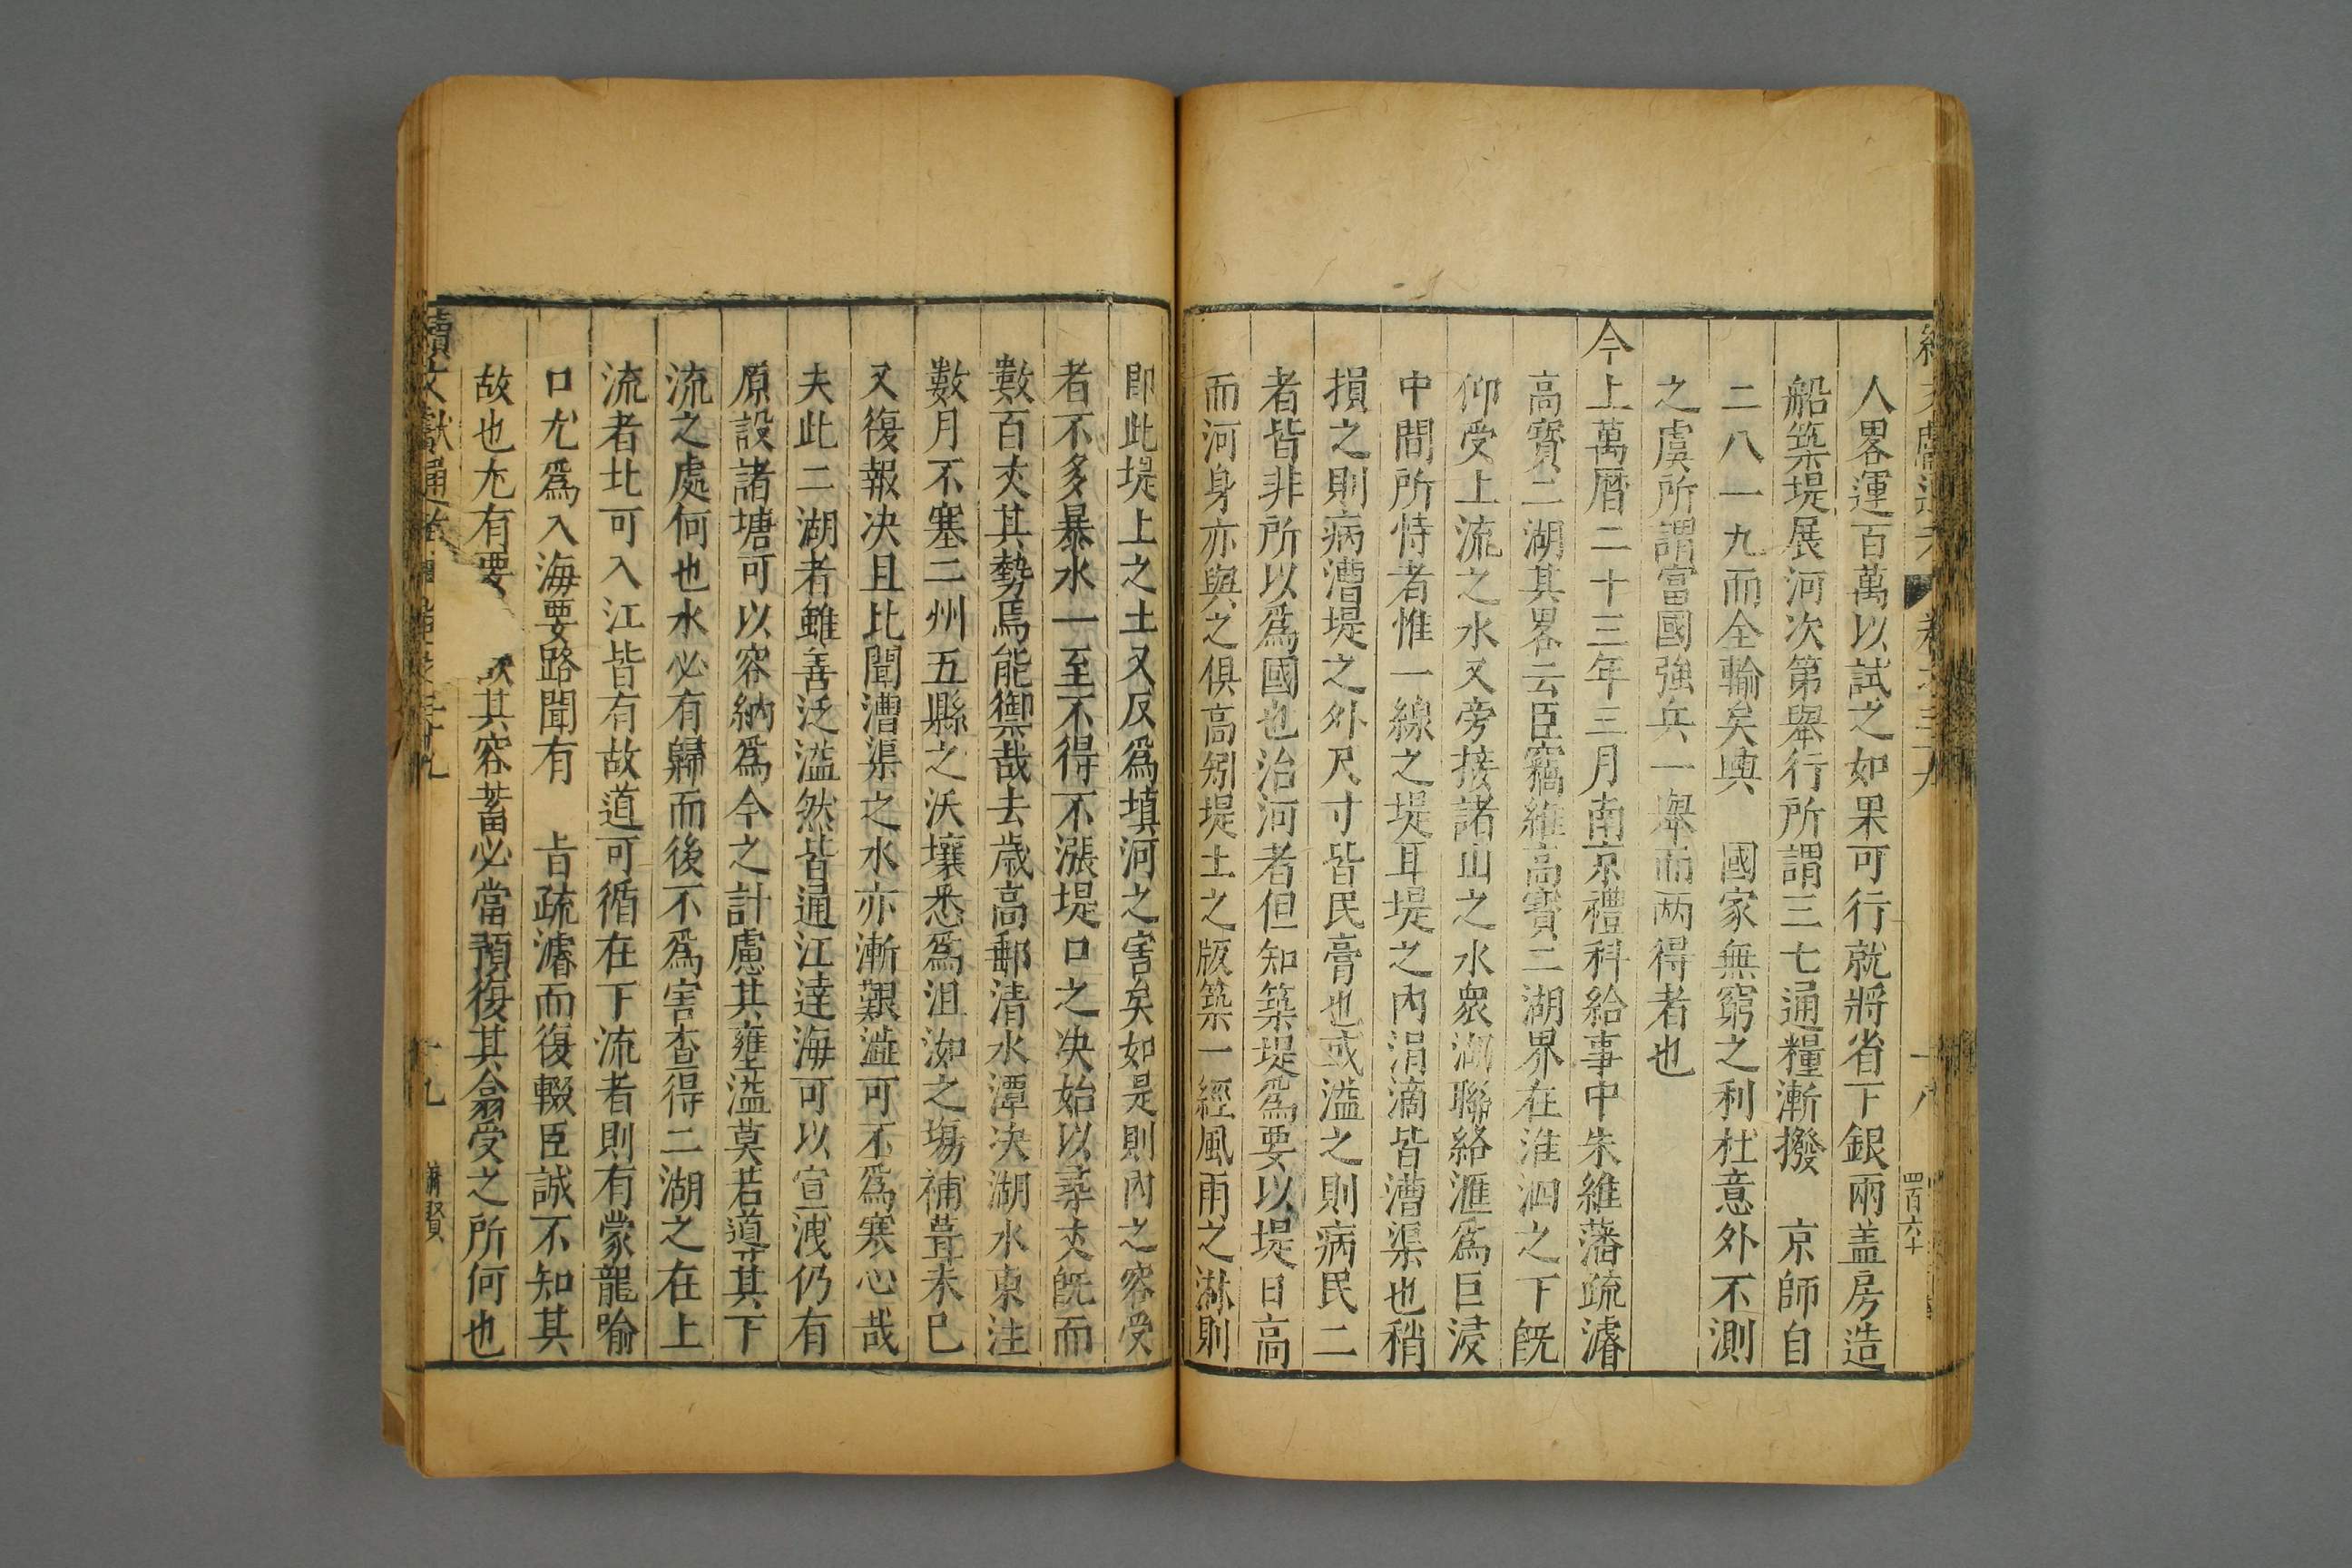 人畧運百萬以試之如果可行就將省下銀兩盖房造
船築堤展河次第舉行所謂三七通糧漸撥　京師自
二八一九而全輸矣輿　國家無窮之利杜意外不測
之虞所謂富國強兵一舉而兩得者也
今上萬曆二十三年三月南京禮科給事中朱維藩疏濬
高寶二湖其畧云臣竊維高寶二湖界在淮泗之下旣
仰受上流之水又旁接諸山之水衆湖聯絡滙爲巨浸
中間所恃者惟一線之堤耳堤之內涓滴皆漕渠也稍
損之則病漕堤之外尺寸皆民膏也或溢之則病民二
者皆非所以爲國也治河者但知築堤爲要以堤日高
而河身亦與之俱高矧堤土之版築一經風雨之淋則
卽此堤上之土又反爲填河之害矣如是則內之容受
者不多暴水一至不得不漲堤口之决始以尋丈旣而
數百丈其勢焉能禦哉去歲高郵清水潭决湖水東注
數月不塞二州五縣之沃壤悉爲沮洳之塲補葺未已
又復報决且比聞漕渠之水亦漸艱澁可不爲寒心哉
夫此二湖者雖善泛溢然皆通江逹海可以宣洩仍有
原設諸塘可以容納爲今之計慮其壅溢莫若導其下
流之處何也水必有歸而後不爲害查得二湖之在上
流者北可入江皆有故道可循在下流者則有蒙龍喻
口尤爲入海要路聞有　旨疏濬而復輟臣誠不知其
故也尤有要　其容蓄必當預復其翕受之所何也
續文獻通考　卷之三十九　十九